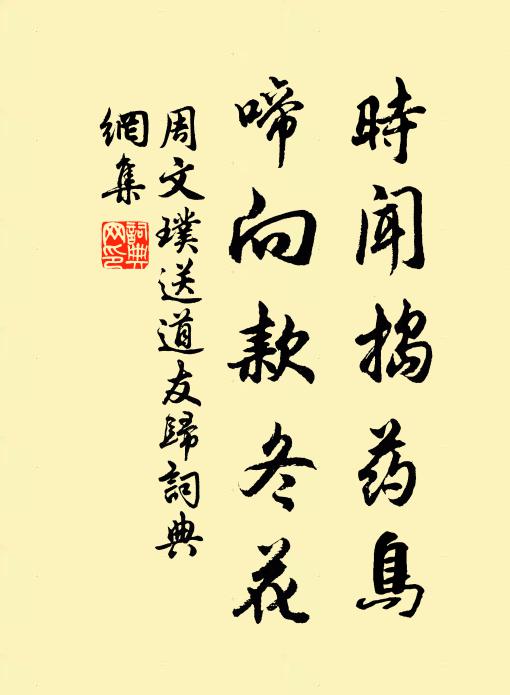 時闻搗药鳥
啼向款冬花
周文璞送道友歸詞典
網集
詞典
网印